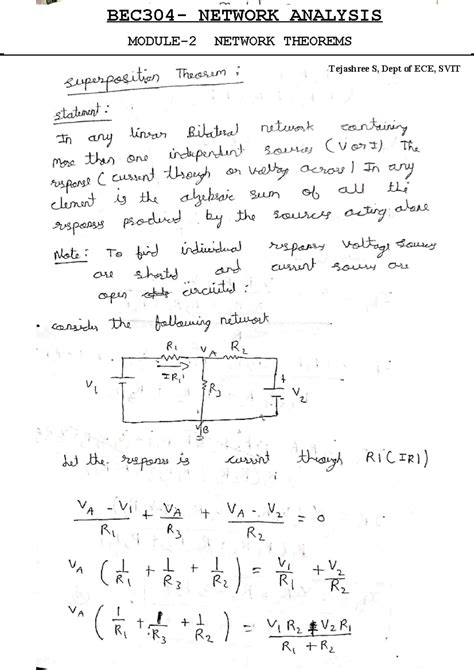 BEC304- NETWORK ANALYSIS
MODULE-2 NETWORK THEOREMS
Tejashree S, Dept of ECE, SVIT
Superposition Theorem :
Statement :
In any linear Bilateral network containing
more than one independent sources (V or I) The
response (current through or voltage across) In any
element is the algebraic sum of all the
responses produced by the sources acting alone
Note : To find individual response voltage sources
are shorted and current sources are
open circuited :
• consider the following network
R1 VA R2
IR1
V1 R3 + V2
VB
Let the response is current through R1 (IR1)
VA - V1 / R1 + VA / R3 + VA - V2 / R2 = 0
VA ( 1/R1 + 1/R3 + 1/R2 ) = V1/R1 + V2/R2
VA ( 1/R1 + 1/R3 + 1/R2 ) = V1 R2 + V2 R1 / R1 + R2